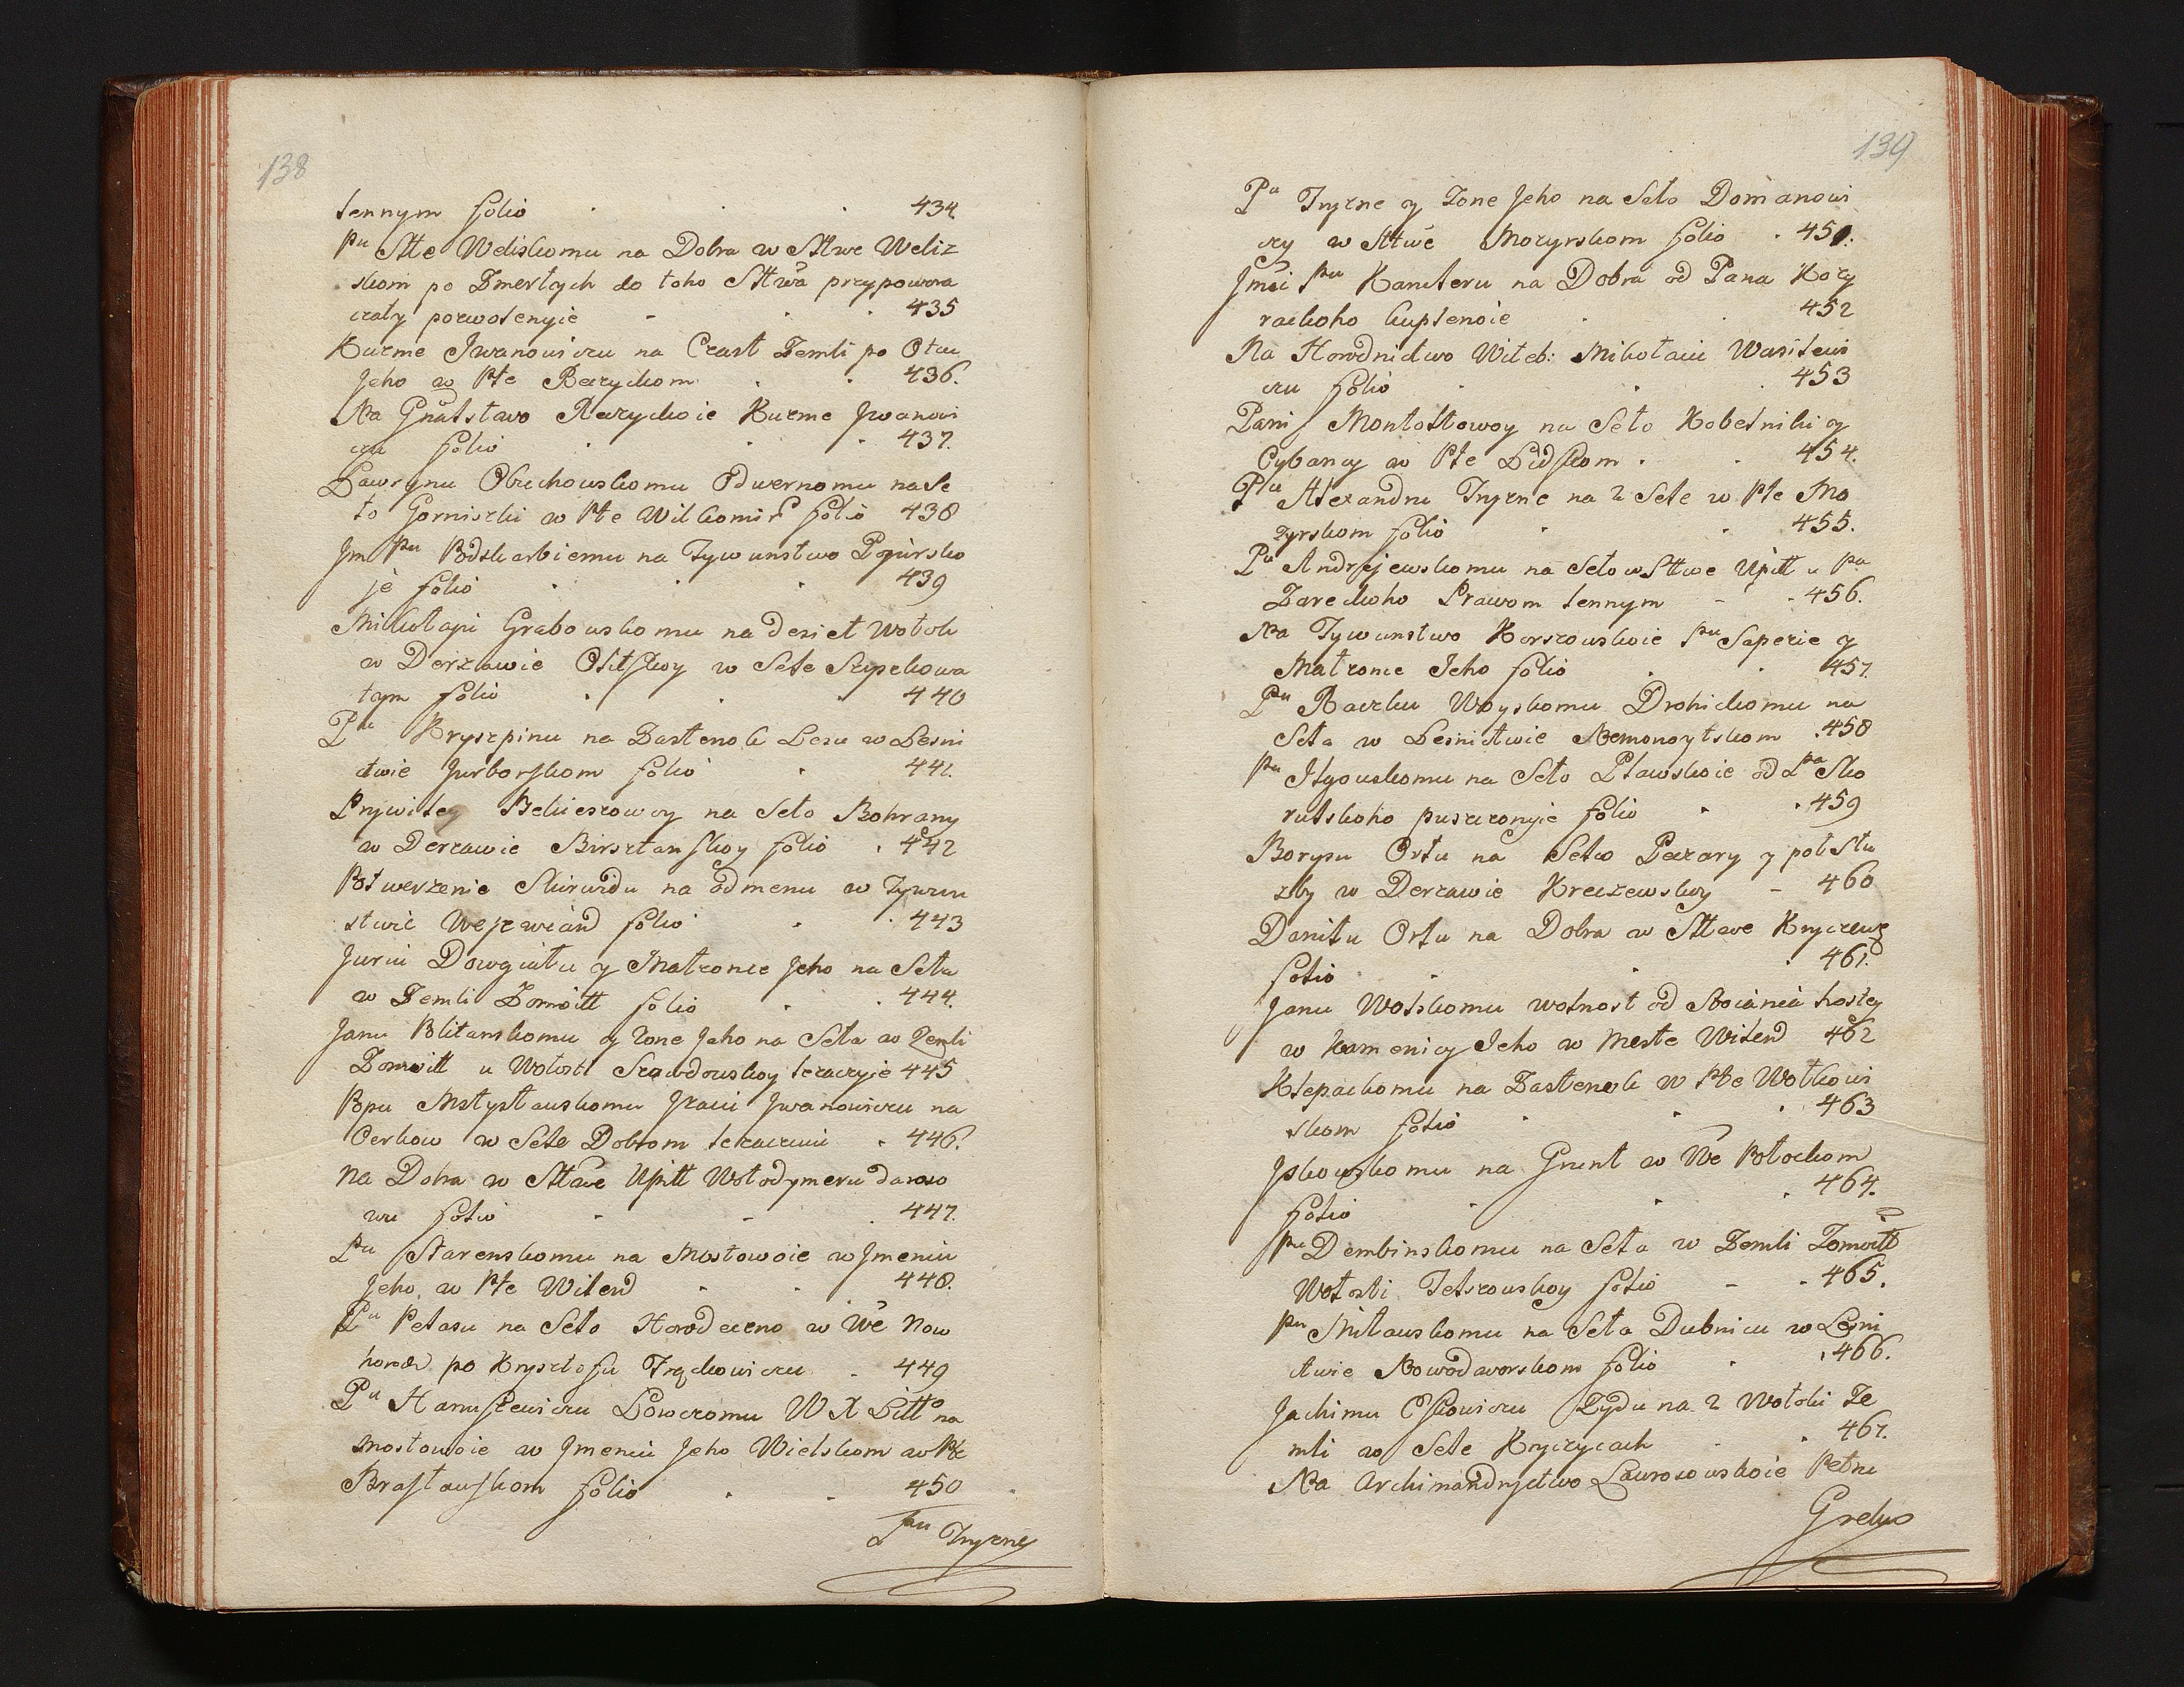 138
lennym folio . . . 434
Pu Stte Weliskomu na Dobra w Sttwe Weliz
skom po Zmerłych do toho Sttwa przypowora
czały pozwolenyie - . . 435
Kuzme Iwanowiczu na Czast Zemli po Otcu
Jeho w Pte Reczyckom . . 436.
Na Gnatstwo Reczyckoie Kuzme Jwanowi
czu folio . . . 437.
Ławrynu Obuchowskomu Odwernomu na Se
ło Gorniszki w Pte Wilkomir folio 438
Jm Pu Podskarbiemu na Tywunstwo Pojursko
je folio . . . 439
Mikołaju Grabowskomu na Desiet Wołok
w Derzawie Olitskoy w Sele Szypekowa
tym folio . . . 440
Pu Kryszpinu na Zastenok Lesu w Lesni
ctwie Jurborskom folio . 441.
Prywiley Bekieszowoy na Seło Bohrany
w Derzawie Birsztanskoy folio . 442
Potwerzenie Skirwidu na odmenu w Tywun
stwie Wejzwiand folio . . 443
Juriu Dowgiału y Małzonce Jeho na Seła
w Zemli Zomoitt folio . . 444.
Janu Politanskomu y Zone Jeho na Seła w Zemli
Zomoitt u Wołosti Szawdowskoy lezaczyie 445
Popu Mstysławskomu Jsaiu Jwanowiczu na
Cerkow w Sele Dobrom lezaczuiu . 446.
Na Dobra w Sttwe Upitt Wołodymeru darowo
wu folio - - . 447.
Pu Starenskomu na Mostowoie w Jmeniu
Jeho w Pte Wilend . . 448.
Pu Petasu na Seło Horodeczno w We Now
horod po Krysztofu Frąckowiczu . 449
Pu Haruszewiczu Łowczomu W X Litto na
Mostowoie w Jmeniu Jeho Wielskom w Pte
Brasławskom folio . . 450
Pu Tryzne
139
Pu Tryzne y Zone Jeho na Seło Domanowi
czy w Sttwe Mozyrskom folio . 451.
Jmci Pu Kancleru na Dobra od Pana Kory
rackoho kuplenoie . . 452
Na Horodnictwo Witeb: Mikołaiu Wasilewi
czu folio . . . 453
Pani Montołtowoy na Seło Kobelniki y
Cybancy w Pte Lidskom . . 454.
Pu Alexandru Tryzne na 2 Sele w Pte Mo
zyrskom folio . . 455.
Pu Andrzejewskomu na Seło w Sttwe Upitt u Pa
Zareckoho Prawom lennym - . 456.
Na Tywunstwo Korszowskoie Pu Sapezie y
Małzonce Jeho folio . . 457.
Pu Raczku Woyskomu Drohickomu na
Seła w Lesnictwie Nemonoytskom . 458
Pu Jlgowskomu na Seło Pławskoie od Pa Sko
rulskoho puszczonyie folio . . 459
Borysu Orłu na Sełco Peczary y poł Słu
zby w Derzawie Kreczewskoy - 460
Daniłu Orłu na Dobra w Sttwe Kryczewz
folio . . . 461.
Janu Wolskomu wolnost od Stoiania hostey
w kamenicy Jeho w Meste Wilend 462
Klepackomu na Zastenok w Pte Wołkowi
skom folio . . . 463
Jskowskomu na Grunt w We Połockom
folio . . . 464.
Pu Dembinskomu na Seła w Zemli Zomoitt
Wołosti Telszowskoy folio - . 465.
Pu Mitawskomu na Seła Dubnicu w Lesni
ctwie Nowodworskom folio . . 466.
Jachimu Eskowiczu Zydu na 2 Wołoki Ze
mli w Sele Kryczycach . . 467.
Na Archimandryctwo Ławroszowskoie Petru
Grekus